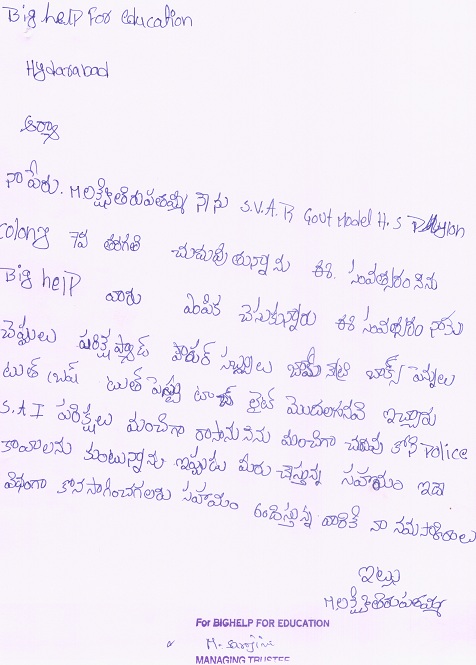 Big help For education
Hyderabad
ఆర్యా
నా పేరు. M లక్ష్మీతిరుపతమ్మ నేను S.V.A.R Govt Model H.S
colony 7వ తరగతి చదువుతున్నాను ఈ సంవత్సరం నేను
Big help వారు ఎంపిక చేసుకున్నారు ఈ సంవత్సరం నాకు
చెప్పులు పరీక్ష ప్యాడ్ పౌడర్ సబ్బులు బాక్స్ పెన్నులు
టుత్ బ్రష్ టుత్ పేస్టు టార్చ్ లైట్ మొదలగునవి ఇచ్చారు
S.A I పరీక్షలు మంచిగా రాసాను నేను మంచిగా చదువు కోని Police
కావాలను కుంటున్నాను ఇప్పుడు మీరు చేస్తున్న సహాయం ఇదే
విధంగా కొనసాగించగలరు సహాయం అందిస్తున్న వారికి నా నమస్కారములు
ఇట్లు
M.లక్ష్మీతిరుపతమ్మ
For BIGHELP FOR EDUCATION
M. Sarojini
MANAGING TRUSTEE